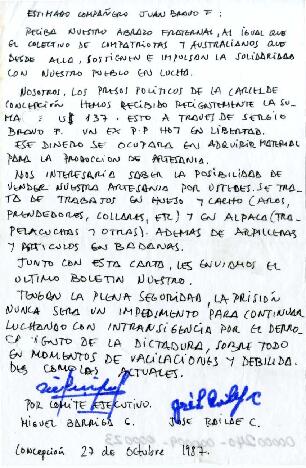 ESTIMADO COMPAÑERO JUAN BRAVO F :
RECIBA NUESTRO ABRAZO FRATERNAL, AL IGUAL QUE
EL COLECTIVO DE COMPATRIOTAS Y AUSTRALIANOS QUE
DESDE ALLA, SOSTIENEN E IMPULSAN LA SOLIDARIDAD
CON NUESTRO PUEBLO EN LUCHA.
NOSOTROS, LOS PRESOS POLITICOS DE LA CARCEL DE
CONCEPCIÓN HEMOS RECIBIDO RECIENTEMENTE LA SU
MA : U$ 137. ESTO A TRAVES DE SERGIO
BRAVO F. UN EX P.P HOY EN LIBERTAD.
ESE DINERO SE OCUPARA EN ADQUIRIR MATERIAL
PARA LA PRODUCCION DE ARTESANIA.
NOS INTERESARIA SABER LA POSIBILIDAD DE
VENDER NUESTRA ARTESANIA POR USTEDES. SE TRA
TA DE TRABAJOS EN HUESO Y CACHO (AROS,
PRENDEDORES, COLLARES, ETC) Y EN ALPACA (TRA-
PELACUCHAS Y OTRAS). ADEMAS DE ARPILLERAS
Y ARTICULOS EN BADANAS.
JUNTO CON ESTA CARTA, LES ENVIAMOS EL
ULTIMO BOLETIN NUESTRO.
TENGAN LA PLENA SEGURIDAD, LA PRISIÓN
NUNCA SERA UN IMPEDIMENTO PARA CONTINUAR
LUCHANDO CON INTRANSIGENCIA POR EL DERRO-
CAMIENTO DE LA DICTADURA, SOBRE TODO
EN MOMENTOS DE VACILACIONES Y DEBILIDA.
DES COMO LAS ACTUALES.
POR COMITE EJECUTIVO.
MIGUEL BARRIGA C. JOSE
Concepción 27 de Octubre 1987.